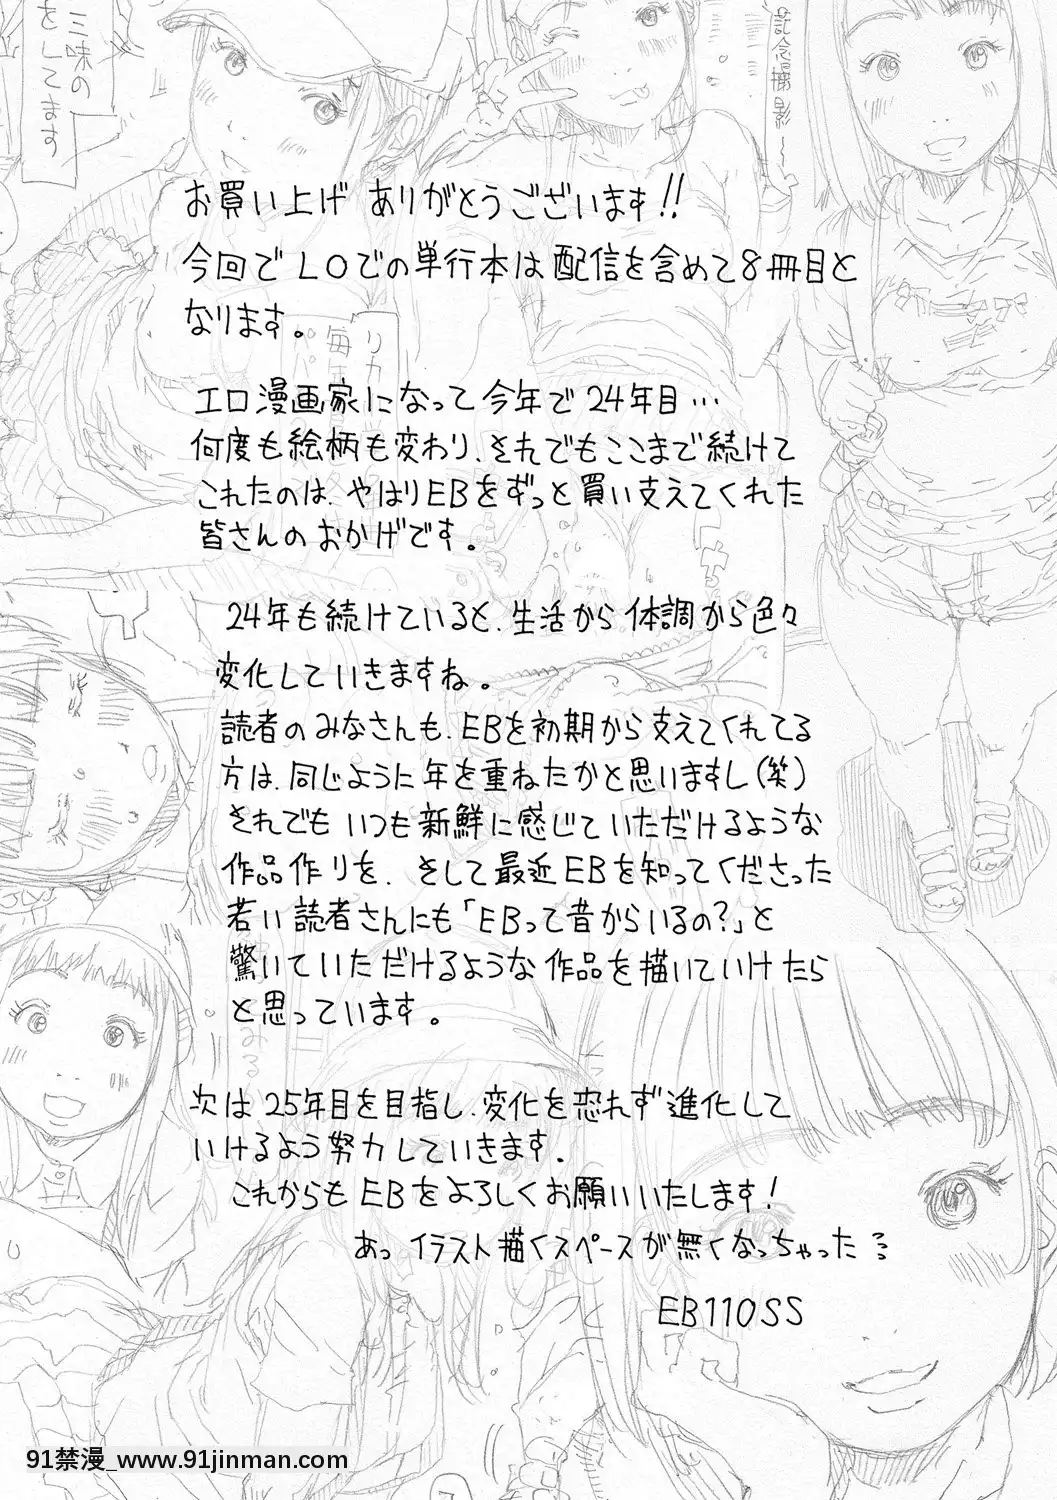 三味の
をしてます
記念撮影〜
お買い上げ ありがとうございます!!
今回でLOでの単行本は配信を含めて8冊目と
なります。
エロ漫画家になって今年で24年目…
何度も絵柄も変わり、それでもここまで続けて
これたのは、やはりEBをずっと買い支えてくれた
皆さんのおかげです。
24年も続けていると、生活から体調から色々
変化していきますね。
読者のみなさんも、EBを初期から支えてくれてる
方は、同じように年を重ねたかと思いますし(笑)
それでもいつも新鮮に感じていただけるような
作品作りを、そして最近EBを知ってくださった
若い読者さんにも「EBって昔からいるの?」と
驚いていただけるような作品を描いていけたら
と思っています。
次は25年目を目指し、変化を恐れず進化して
いけるよう努力していきます。
これからもEBをよろしくお願いいたします!
あっイラスト描くスペースが無くなっちゃった
EB110SS
91禁漫_www.91jinman.com